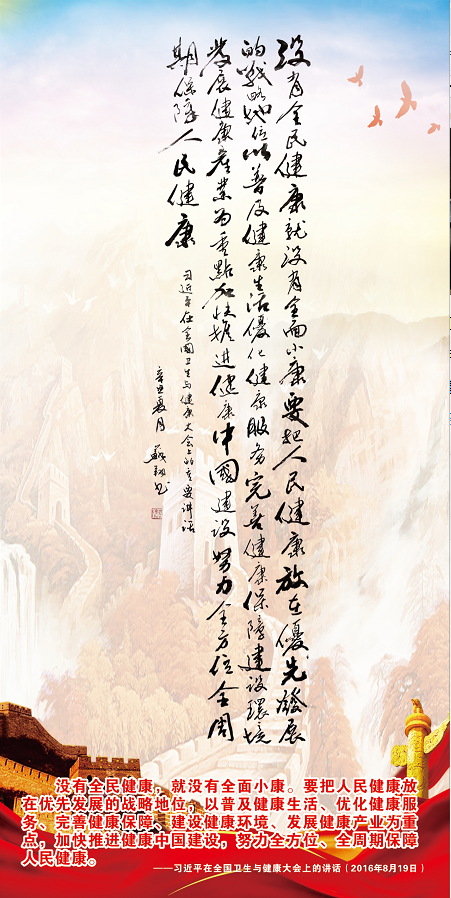 没有全民健康就没有全面小康要把人民健康放在优先發展
的戰略地位以普及健康生活優化健康服务完善健康保障建设環境
發展健康產業为重點加快推進健康中國建设努力全方位全周
期保障人民健康
习近平在全国卫生与健康大会上的重要讲话
辛丑夏月
没有全民健康，就没有全面小康。要把人民健康放
在优先发展的战略地位，以普及健康生活、优化健康服
务、完善健康保障、建设健康环境、发展健康产业为重
点，加快推进健康中国建设，努力全方位、全周期保障
人民健康。
——习近平在全国卫生与健康大会上的讲话（2016年8月19日）